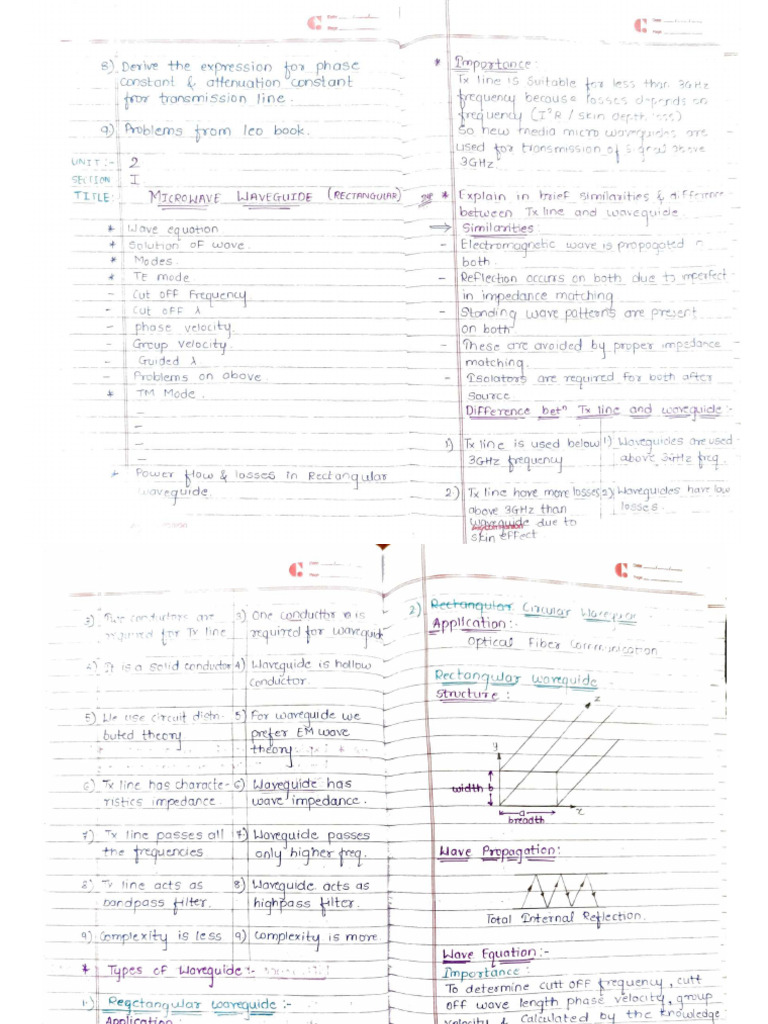 8) Derive the expression for phase
constant & attenuation constant
fror transmission line.
9) Problems from leo book.
UNIT :- 2
SECTION I
TITLE: MICROWAVE WAVEGUIDE (RECTANGULAR)
* Wave equation
* Solution of wave.
* Modes.
* TE mode
- Cut off Frequency
- Cut off λ
- phase velocity
- Group velocity
- Guided λ
- Problems on above
* TM Mode.
-
-
-
-
* Power flow & losses in Rectangular
waveguide.
* Importance:
Tx line is suitable for less than 3GHz
frequency because losses depends on
frequency (I²R / skin depth loss)
So new media micro waveguides are
used for transmission of signal above
3GHz.
* Explain in brief similarities & difference
between Tx line and waveguide.
⇒ Similarities:
- Electromagnetic wave is propagated in
both.
- Reflection occurs on both due to imperfect
in impedance matching
- Standing wave patterns are present
on both
- These are avoided by proper impedance
matching.
- Isolators are required for both after
source
Difference betⁿ Tx line and waveguide :-
1) Tx line is used below 1) Waveguides are used
3GHz frequency above 3GHz freq.
2) Tx line have more losses 2) Waveguides have low
above 3GHz than losses.
waveguide due to
skin effect.
3) Two conductors are 3) One conductor is
required for Tx line required for waveguide
4) It is a solid conductor 4) Waveguide is hollow
conductor.
5) We use circuit distri- 5) For waveguide we
buted theory prefer EM wave
theory
6) Tx line has characte- 6) Waveguide has
ristics impedance. wave impedance.
7) Tx line passes all 7) Waveguide passes
the frequencies only higher freq.
8) Tx line acts as 8) Waveguide acts as
bandpass filter. highpass filter.
9) Complexity is less 9) Complexity is more.
* Types of Waveguide :-
1) Regctangular waveguide :-
Application :
2) Rectangular Circular Waveguide
Application :-
Optical Fiber Communication
Rectangular waveguide
Structure :
z
y
width b
a
x
breadth
Wave Propagation:
Total Internal Reflection.
Wave Equation :-
Importance :
To determine cutt off frequency, cutt
off wave length phase velocity, group
velocity & Calculated by the knowledge